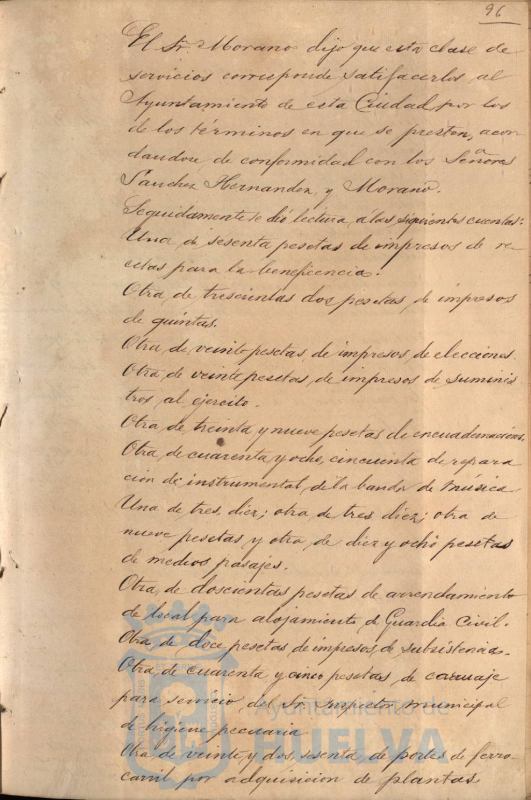 96
El Sr. Morano dijo que esta clase de
servicios corresponde satifacerlos al
Ayuntamiento de esta Ciudad por los
de los términos en que se presten, acor
dandose de conformidad con los Señores
Sanchez Hernandez y Morano.
Seguidamente se dió lectura a las siguientes cuentas:
Una de sesenta pesetas de impresos de re
cetas para la beneficencia.
Otra de trescientas dos pesetas de impresos
de quintas.
Otra de veinte pesetas de impresos de elecciones.
Otra de veinte pesetas de impresos de suminis
tros al ejercito.
Otra de treinta y nueve pesetas de encuadernacion.
Otra de cuarenta y ocho, cincuenta de repara
ción de instrumental de la banda de música
Una de tres, diez; otra de tres diez; otra de
nueve pesetas y otra de diez y ocho pesetas
de medios pasajes.
Otra de doscientas pesetas de arrendamiento
de local para alojamiento de Guardia Civil.
Otra de doce pesetas de impresos de subsistencia.
Otra de cuarenta y cinco pesetas de carruaje
para servicio del Sr. Inspector municipal
de higiene pecuaria
Otra de veinte y dos, sesenta de portes de ferro-
carril por adquisicion de plantas
Ayuntamiento de
HUELVA